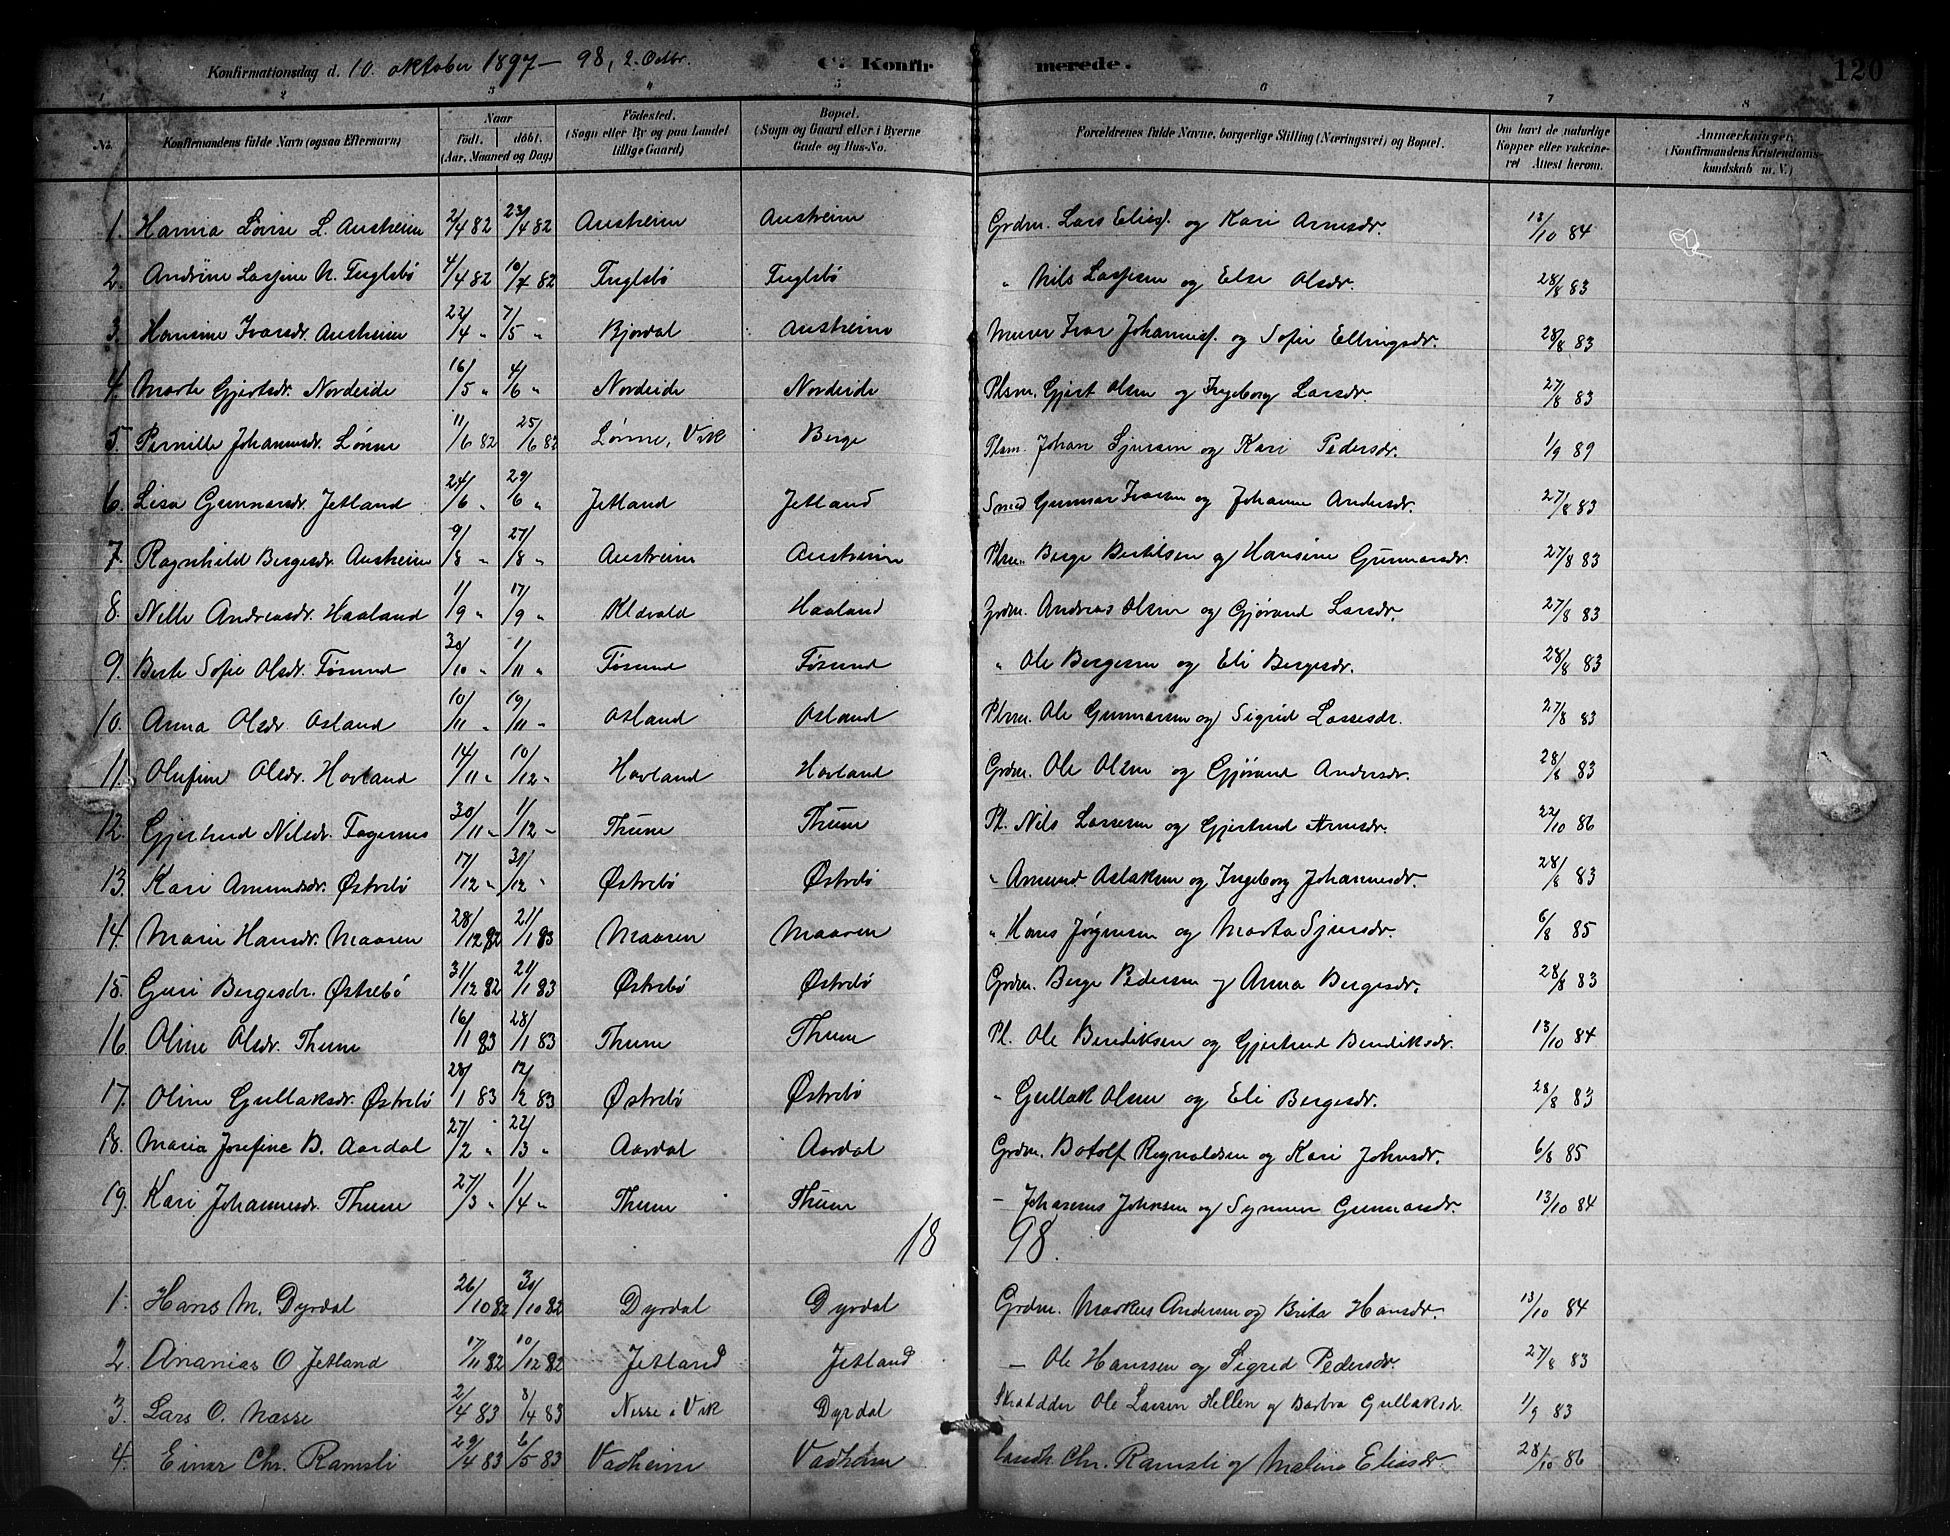 Konfirmationsdag d. 10. oktober 1897 – 98, 2. Octbr. C. Konfirmerede. 120
1 2 3 4 5 6 7 8
No. Konfirmandens fulde Navn (ogsaa Efternavn) Naar födt. döbt. (Aar, Maaned og Dag) Födested. (Sogn eller By og paa Landet tillige Gaard) Bopæl. (Sogn og Gaard eller i Byerne Gade og Hus-No. Forældrenes fulde Navne, borgerlige Stilling (Næringsvei) og Bopæl. Om havt de naturlige Kopper eller vakcineret Attest herom. Anmærkninger, (Konfirmandens Kristendomskundskab m. V.)
1. Hanna Lovise L. Austreim 2/4 82 23/4 82 Austreim Austreim Grdm. Lars Eliesf. og Kari Arnesdr. 13/10 84
2. Andrine Lassine N. Fuglsbö 4/4 82 10/4 82 Fuglsbö Fuglsbö " Nils Lassesen og Else Olsdr. 28/8 83
3. Hansine Ivarsdr. Austreim 22/4 " 7/5 " Bjordal Austreim Murer Ivar Johannesf. og Sofie Ellingsdr. 28/8 83
4. Marte Gjertsdr. Nordeide 16/5 " 4/6 " Nordeide Nordeide Plsm. Gjert Olsen og Ingeborg Larsdr. 27/8 83
5. Pernille Johannesdr. Lønne 11/6 82 25/6 82 Lønne, Vik Berge Plsm. Johan Sjursen og Kari Pedersdr. 1/9 89
6. Lisa Gunnarsdr. Jetland 24/6 " 29/6 " Jetland Jetland Smed Gunnar Ivarsen og Johanne Andersdr. 27/8 83
7. Ragnhild Bergesdr. Austreim 9/8 " 27/8 " Austreim Austreim Plsm. Berge Bertilsen og Hansine Gunnarsdr. 27/8 83
8. Nille Andreasdr. Haaland 1/9 " 17/9 " Klævold Haaland Grdm. Andreas Olsen og Gjørand Larsdr. 27/8 83
9. Berte Sofie Olsdr. Føsund 30/10 " 1/11 " Føsund Føsund " Ole Bergesen og Eli Bergesdr. 28/8 83
10. Anna Olsdr. Osland 10/11 " 19/11 " Osland Osland Plsm. Ole Gunnarsen og Sigrid Lassesdr. 27/8 83
11. Olufine Olsdr. Hovland 14/11 " 10/12 " Hovland Hovland Grdm. Ole Olsen og Gjørand Andersdr. 28/8 83
12. Gjertrud Nilsdr. Fagernes 30/11 " 1/12 " Thune Thune Pl. Nils Lassesen og Gjertrud Arnesdr. 22/10 86
13. Kari Amundsdr. Østrebö 17/12 " 31/12 " Østrebö Østrebö " Amund Aslaksen og Ingeborg Johannesdr. 28/8 83
14. Marie Hansdr. Maaren 28/12 82 21/1 83 Maaren Maaren " Hans Jørgensen og Marta Sjursdr. 6/8 85
15. Guri Bergesdr. Østrebö 31/12 82 21/1 83 Østrebö Østrebö Grdm. Berge Pedersen og Anna Bergesdr. 28/8 83
16. Oline Olsdr. Thune 16/1 83 28/1 83 Thune Thune Pl. Ole Bendiksen og Gjertrud Bendiksdr. 13/10 84
17. Oline Gullaksdr. Østrebö 28/1 83 12/2 83 Østrebö Østrebö " Gullak Olsen og Eli Bergesdr. 28/8 83
18. Maria Josefine B. Aardal 27/2 " 22/3 " Aardal Aardal Grdm. Botolf Reynaldsen og Kari Johnsdr. 6/8 85
19. Kari Johannesdr. Thune 27/3 " 1/4 " Thune Thune – Johannes Johnsen og Synneve Gunnarsdr. 13/10 84
18 98.
1. Hans M. Dyrdal 26/10 82 30/10 82 Dyrdal Dyrdal Grdm. Markus Andersen og Brita Hansdr. 13/10 84
2. Ananias O. Jetland 17/11 82 10/12 82 Jetland Jetland – Ole Hanssen og Sigrid Pedersdr. 27/8 83
3. Lars O. Nasse 2/4 83 8/4 83 Nesse i Vik Dyrdal Skrædder Ole Larsen Hellen og Barbra Gullaksdr. 1/9 83
4. Einar Chr. Ramsli 29/4 83 6/5 83 Vadheim Vadheim Landh. Chr. Ramsli og Malene Eliasdr. 28/10 86